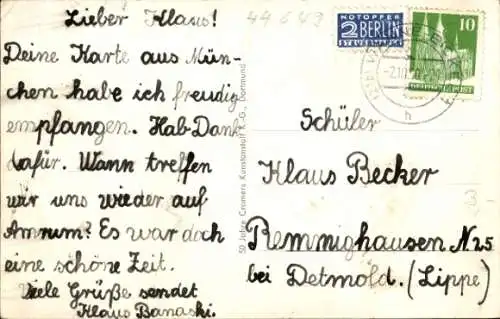 Lieber Klaus!
Deine Karte aus Mün-
chen habe ich freudig
empfangen. Hab Dank
dafür. Wann treffen
wir uns wieder auf
Amrum? Es war doch
eine schöne Zeit.
Viele Grüße sendet
Klaus Banaski.
50 Jahre Cramers Kunstanstalt K.-G., Dortmund
NOTOPFER
2 BERLIN
STEUERMARKE
10
DEUTSCHE POST
h
Schüler
Klaus Becker
Remmighausen N 25
bei Detmold. (Lippe)